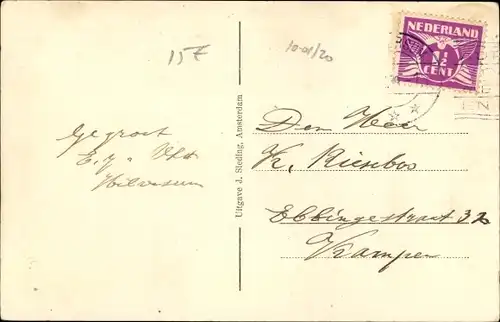 15
10-01/20
NEDERLAND
1½
CENT
Gegroet
E.
Hilversum
Uitgave J. Sleding, Amsterdam
Den Heer
K. Riesebos
Ebbingestraat 32
Kampen